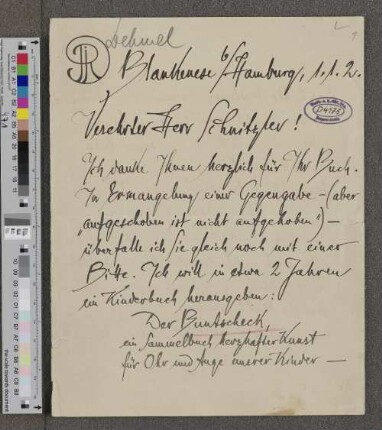 Dehmel
Blankenese b/Hamburg, 1.1.2.
Verehrter Herr Schnitzler!
Ich danke Ihnen herzlich für Ihr Buch.
In Ermangelung einer Gegengabe – (aber
„aufgeschoben ist nicht aufgehoben") –
überfalle ich Sie gleich noch mit einer
Bitte. Ich will in etwa 2 Jahren
ein Kinderbuch herausgeben:
Der Buntscheck,
ein Sammelbuch herzhafter Kunst
für Ohr und Auge unsrer Kinder –